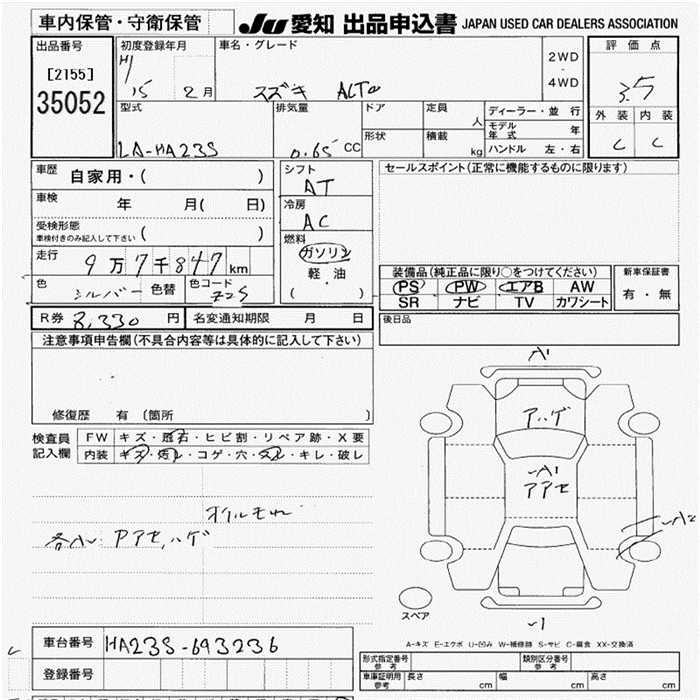 車内保管・守衛保管
JU 愛知 出品申込書 JAPAN USED CAR DEALERS ASSOCIATION
出品番号
[2155]
35052
初度登録年月
H
15 2月
車名・グレード
スズキ ALTO
2WD
・
4WD
評価点
3.5
外装 内装
C C
型式
LA-HA23S
排気量
0.65 CC
ドア
形状
定員
人
積載
kg
ディーラー・並行
モデル年式 年
ハンドル 左・右
車歴
自家用・( )
車検
年 月( 日)
受検形態
車検付きのみ記入して下さい ( )
走行
9万7千847km
色
シルバー
色替
色コード
Z2S
シフト
AT
冷房
AC
燃料
ガソリン
・
軽油
( )
セールスポイント(正常に機能するものに限ります)
装備品(純正品に限り○をつけてください)
PS PW エアB AW
SR ナビ TV カワシート
新車保証書
有・無
R券 8,330 円
名変通知期限 月 日
後日品
注意事項申告欄(不具合内容等は具体的に記入して下さい)
修復歴 有 〔箇所 〕
検査員
記入欄
FW キズ・飛石・ヒビ割・リペア跡・X要
内装 キズ・汚レ・コゲ・穴・スレ・キレ・破レ
オイルモレ
各A〜 アアセ,ハゲ
A1
アハゲ
A1
アアセ
A2
スペア
1
A-キズ E-エクボ U-凹み W-補修跡 S-サビ C-腐食 XX-交換済
車台番号 HA23S-693236
登録番号
形式指定番号
参考
類別区分番号
参考
車庫証明用
参考
長さ cm 幅 cm 高さ cm